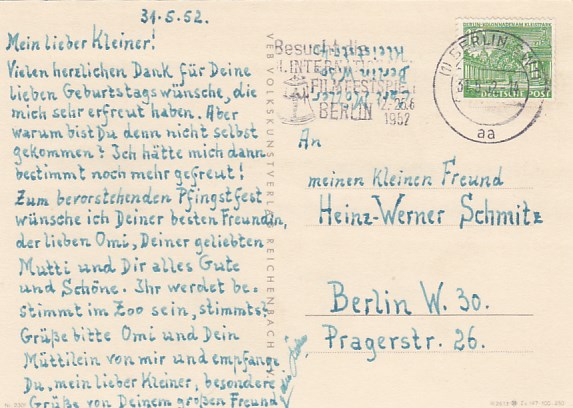 31.5.52.
Mein lieber Kleiner!
Vielen herzlichen Dank für Deine
lieben Geburtstagswünsche, die
mich sehr erfreut haben. Aber
warum bist Du denn nicht selbst
gekommen? Ich hätte mich dann
bestimmt noch mehr gefreut!
Zum bevorstehenden Pfingstfest
wünsche ich Deiner besten Freundin,
der lieben Omi, Deiner geliebten
Mutti und Dir alles Gute
und Schöne. Ihr werdet be-
stimmt im Zoo sein, stimmts?
Grüße bitte Omi und Dein
Müttilein von mir und empfange
Du, mein lieber Kleiner, besondere
Grüße von Deinem großen Freund
VEB VOLKSKUNSTVERLAG REICHENBACH
Besucht die
INTERNATION
FILMFESTSPIELE
BERLIN
1952
BERLIN
aa
BERLIN-KOLONNADEN AM KLEISTPARK
POST
Berlin W30
Kleiststr.
An
meinen kleinen Freund
Heinz-Werner Schmitz
Berlin W. 30.
Pragerstr. 26.